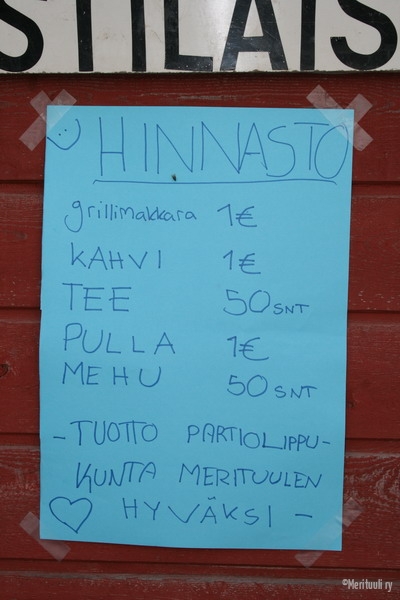 STILAIS
HINNASTO
grillimakkara 1€
KAHVI 1€
TEE 50 SNT
PULLA 1€
MEHU 50 SNT
- TUOTTO PARTIOLIPPU-
KUNTA MERITUULEN
HYVÄKSI -
©Merituuli ry